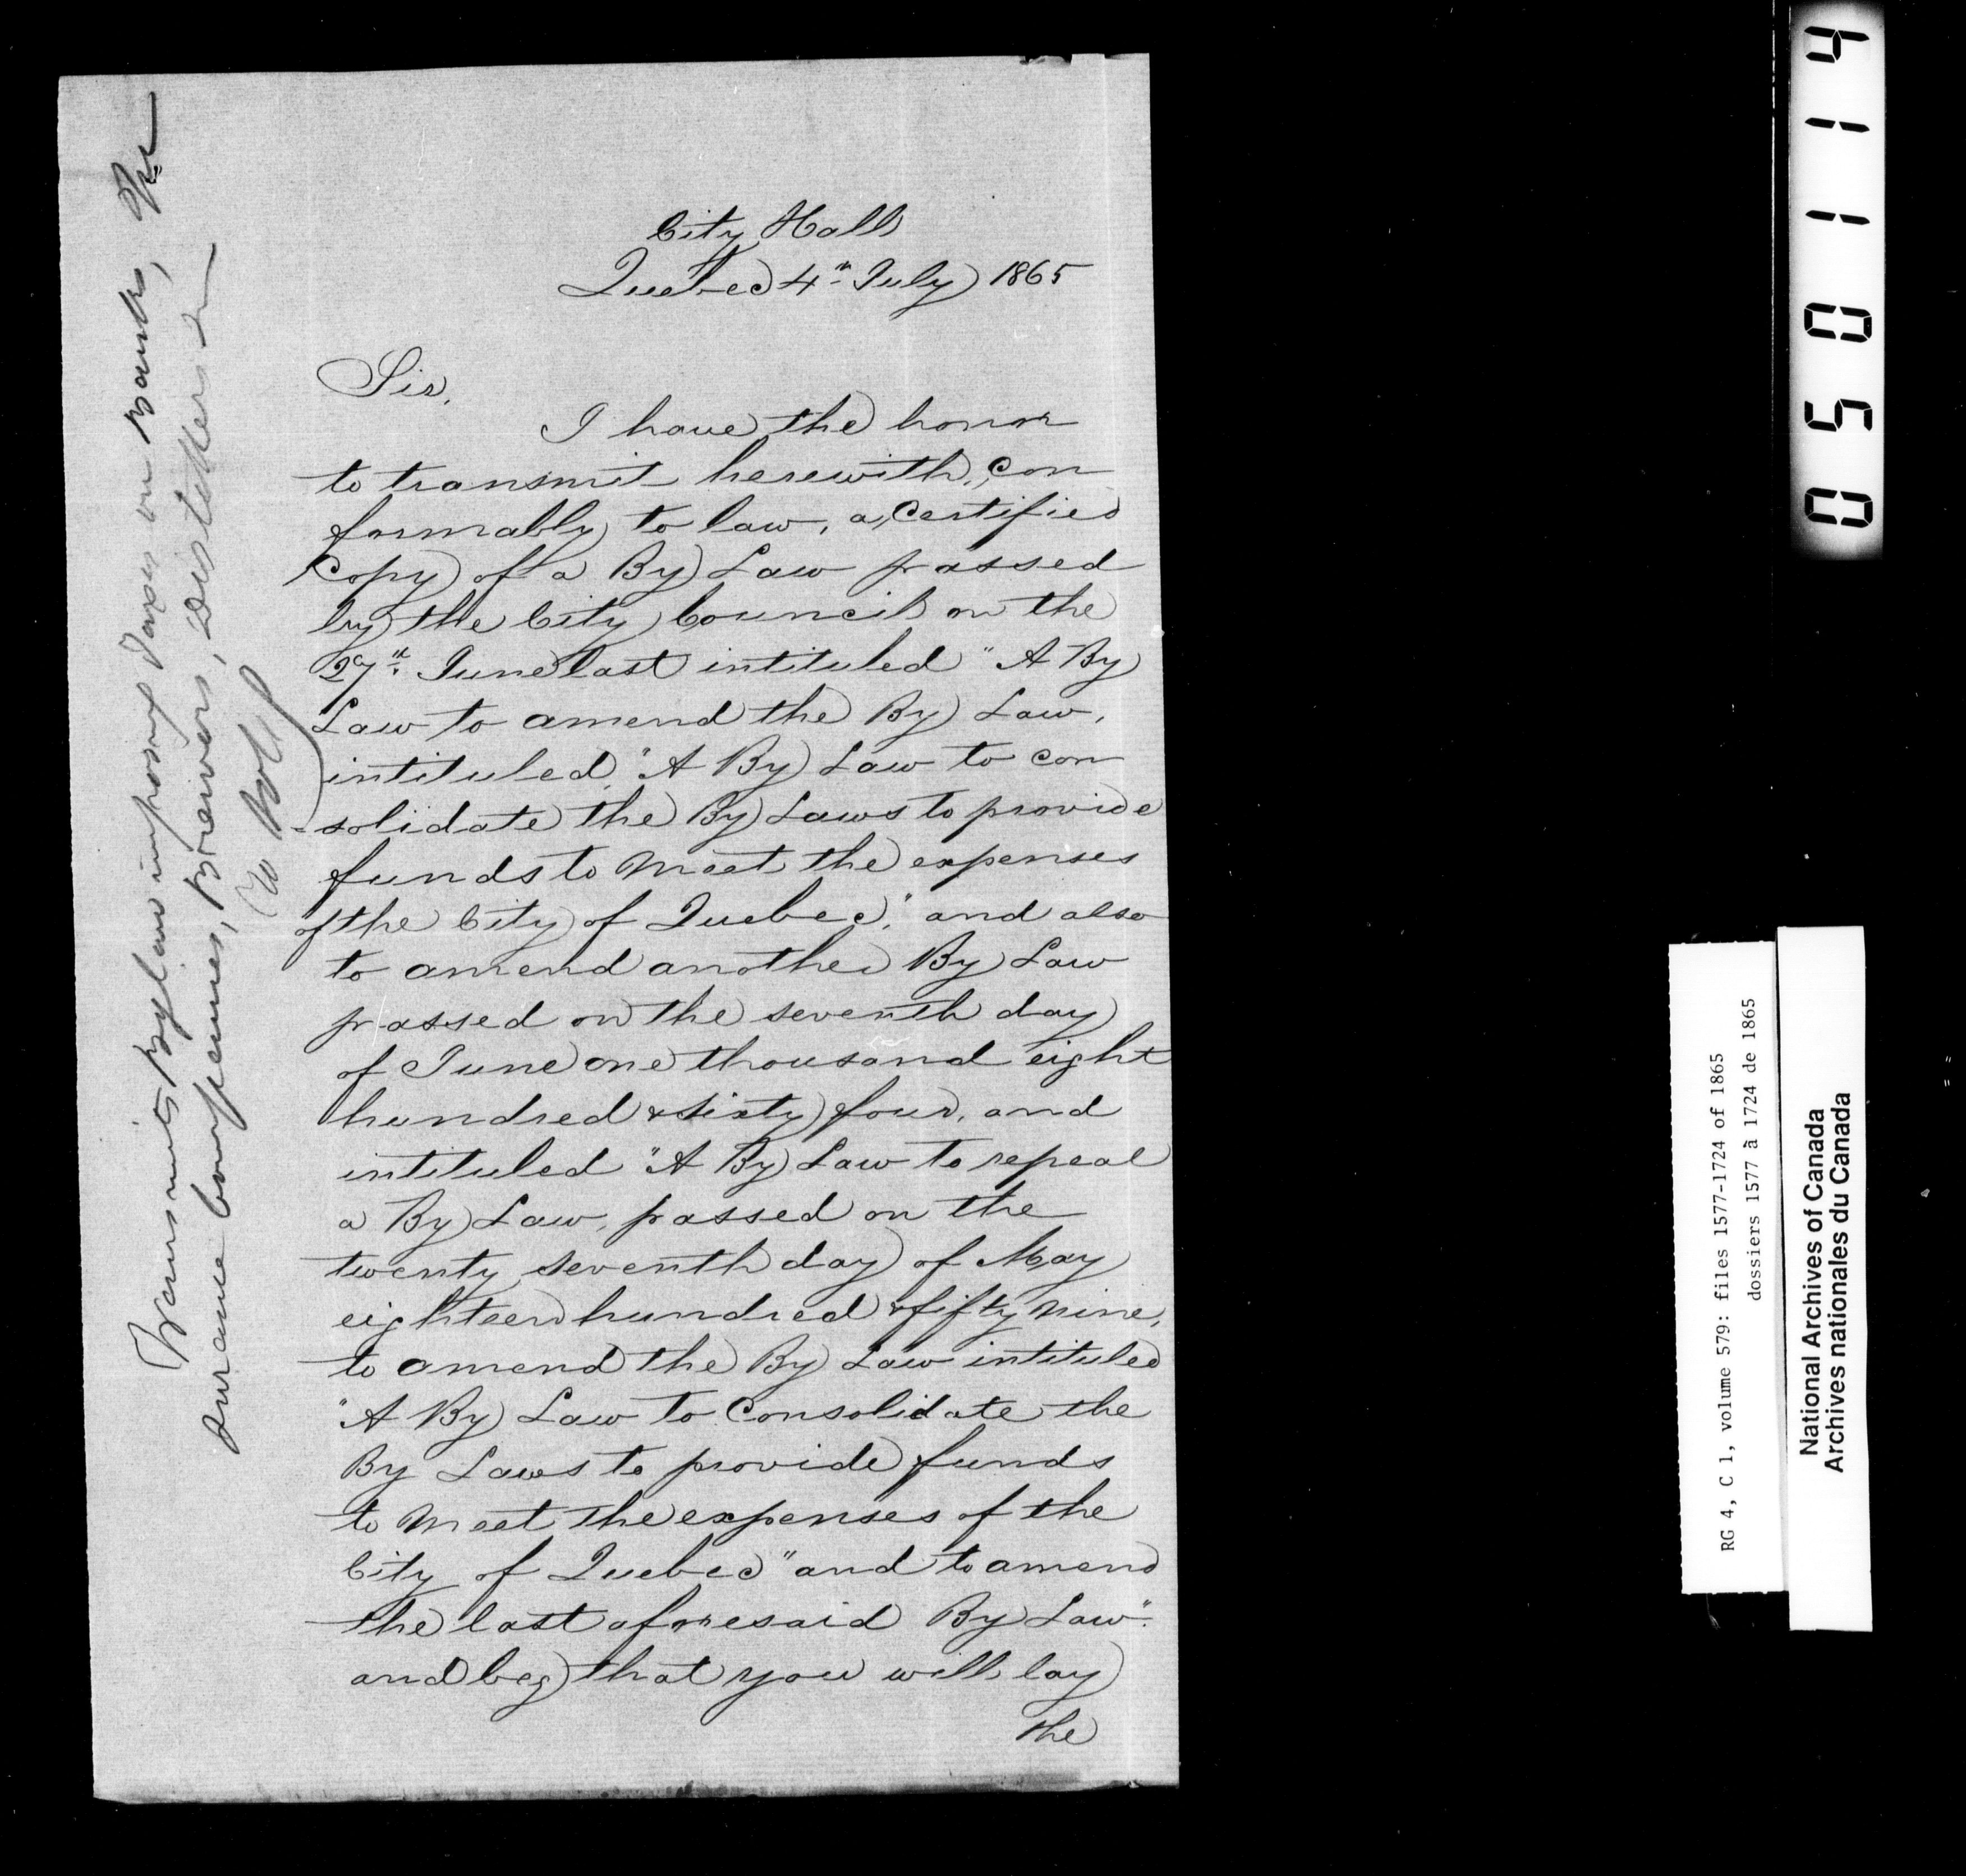 City Hall
Quebec 4th July 1865
Sir,
I have the honor
to transmit herewith, con
formably to law, a Certified
Copy of a By Law passed
by the City Council on the
27th June last intituled "A By
Law to amend the By Law,
intituled, "A By Law to con
solidate the By Laws to provide
funds to meet the expenses
of the City of Quebec," and also
to amend another By Law
passed on the seventh day
of June one thousand eight
hundred & sixty four, and
intituled "A By Law to repeal
a By Law, passed on the
twenty seventh day of May
eighteen hundred & fifty nine,
to amend the By Law intituled
"A By Law to Consolidate the
By Laws to provide funds
to meet the expenses of the
City of Quebec" and to amend
the last aforesaid By Law".
and beg that you will lay
the
Transmits Bylaw imposing Taxes on Banks,
surance Companies, Brewers, Distillers
050114
RG 4, C 1, volume 579: files 1577-1724 of 1865
dossiers 1577 à 1724 de 1865
National Archives of Canada
Archives nationales du Canada